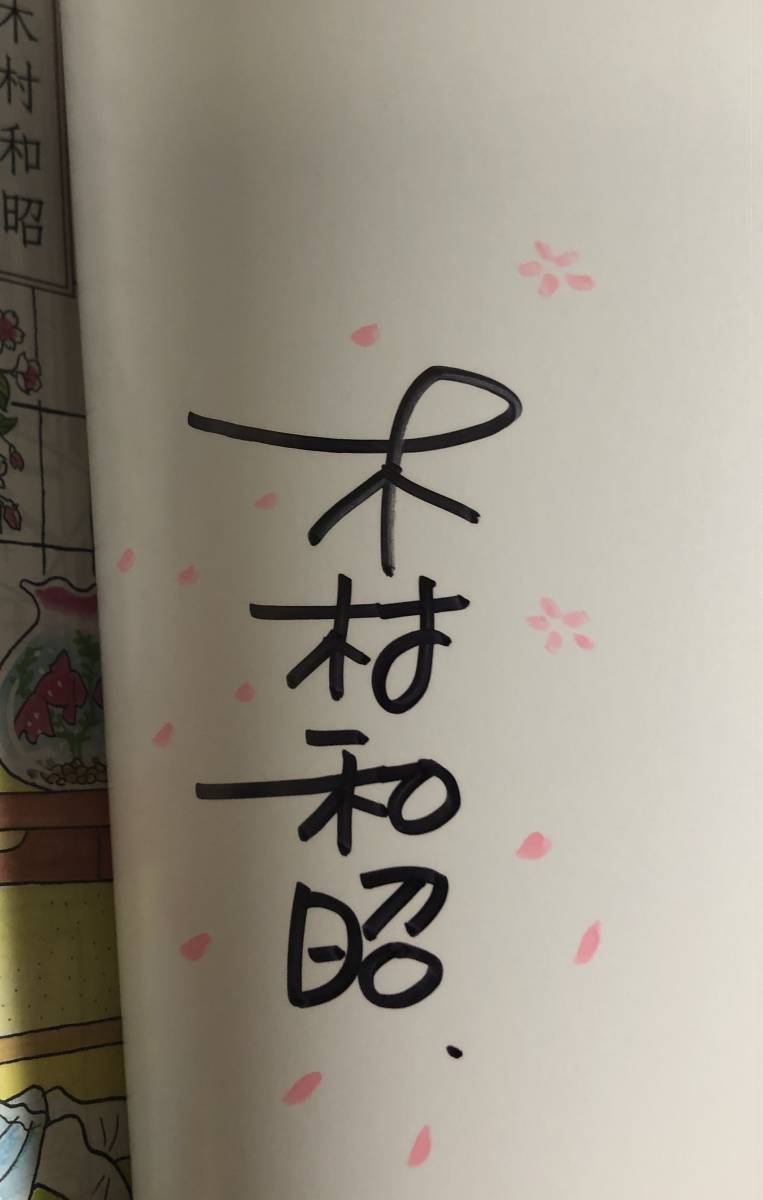 木村和昭
木村和昭.